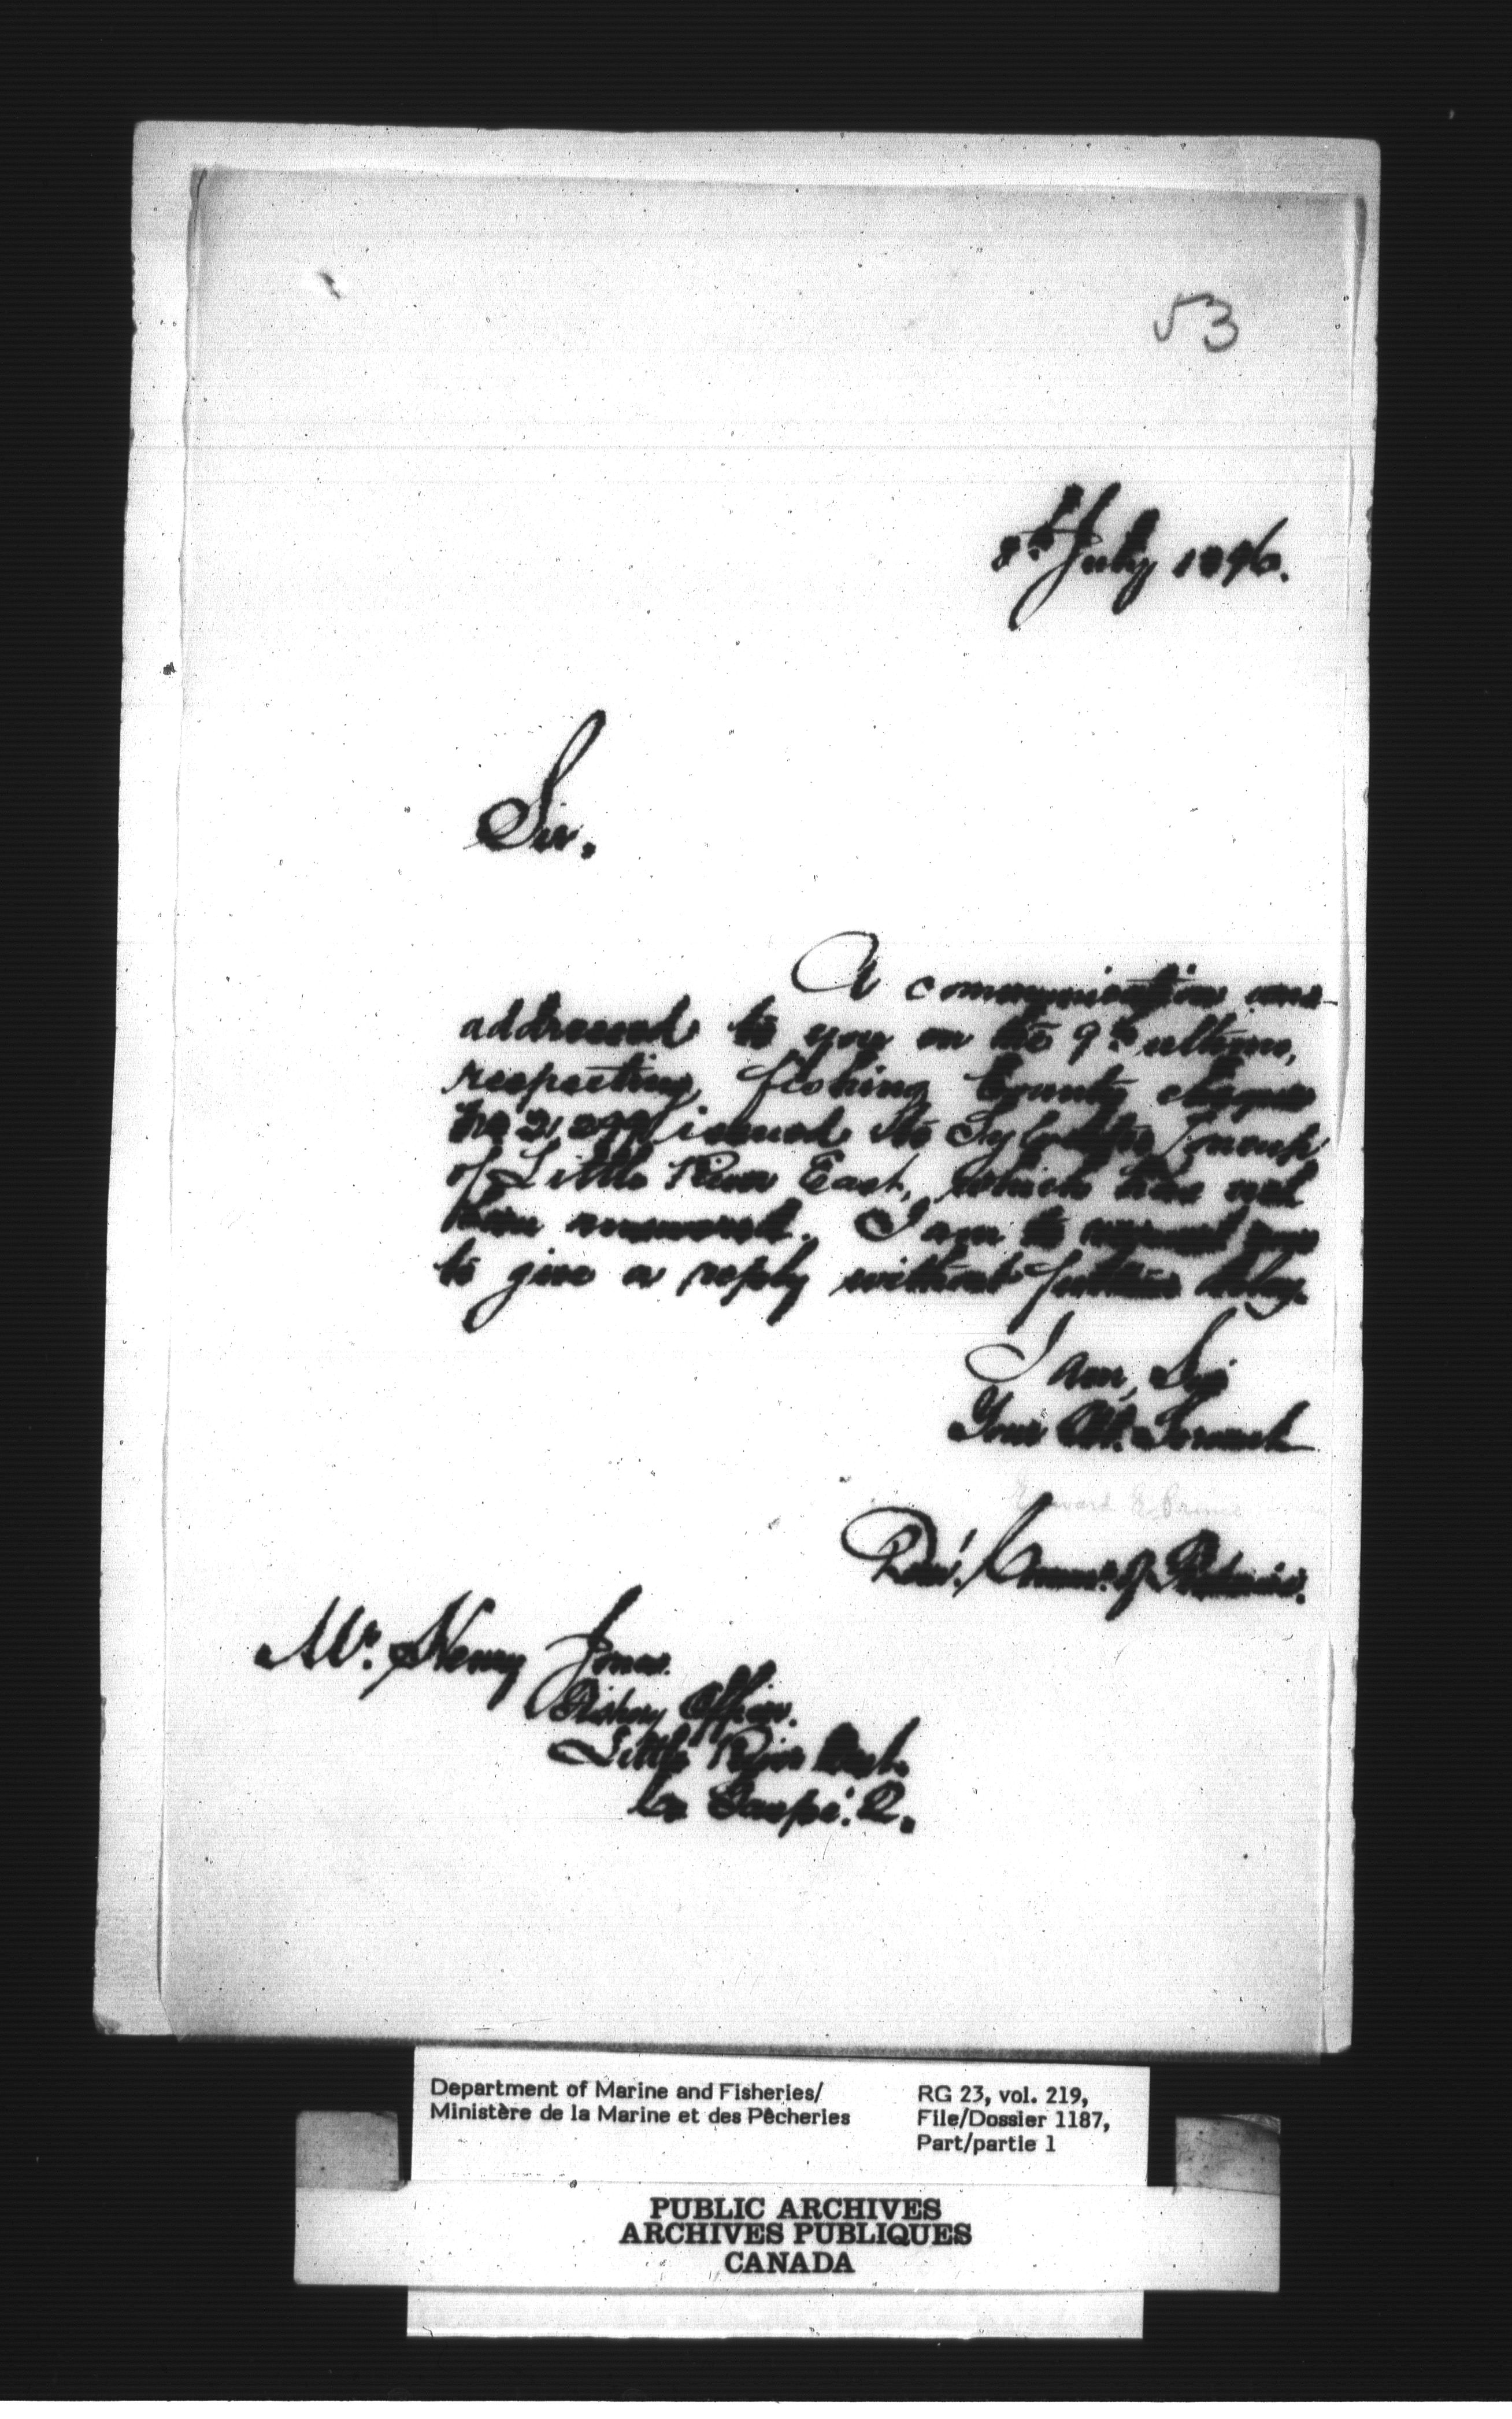 53
8th July 1896.
Sir.
A communication was
addressed to you on the 9th ultimo,
respecting fishing bounty cheque
No 21299 issued to Sylvester
of Little River East, which has not
been answered. I am to request you
to give a reply without further delay.
I am, Sir
Your Ob. Servant
Edward E. Prince
Dom! Commr. of Fisheries.
Mr. Henry Jones.
Fishery Officer.
Little River East.
Co Gaspé. Q.
Department of Marine and Fisheries/
Ministère de la Marine et des Pêcheries
RG 23, vol. 219,
File/Dossier 1187,
Part/partie 1
PUBLIC ARCHIVES
ARCHIVES PUBLIQUES
CANADA